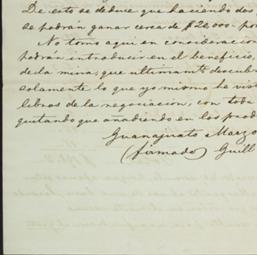 De esto se deduce que haciendo dos
se podrán ganar cerca de $20.000
No tomo aquí en consideracion
podrán introducir en el beneficio,
de la mina, que ultimamte descub
solamente lo que yo mismo he vist
libros de la negociacion, con toda
quitando que añadiendo en los prod
Guanajuato Marzo
(firmado) Guill